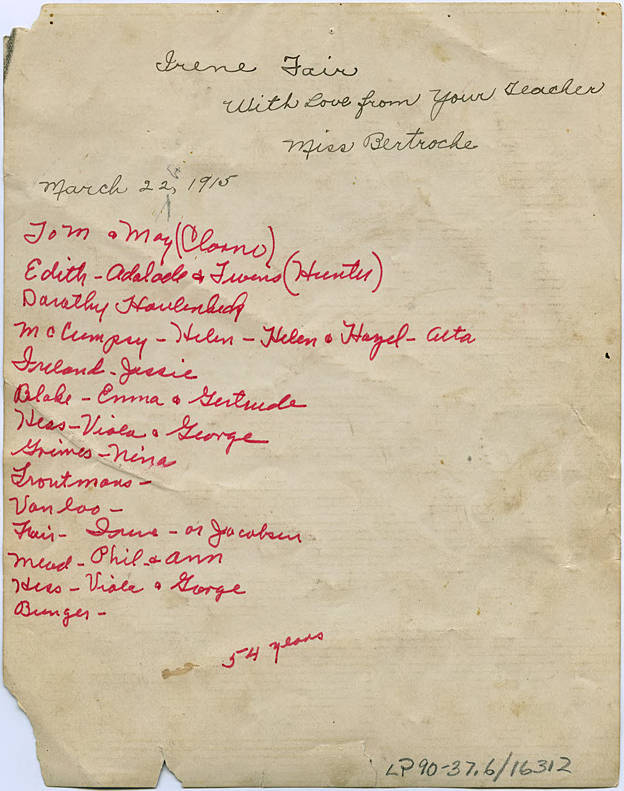 Irene Fair
With Love from Your Teacher
Miss Bertroche
March 22, 1915
Tom & May (Clarno)
Edith - Adalade & Twins (Hunter)
Dorathy
McCumpsy - Helen - Helen & Hazel - Alta
Ireland - Jessie
Blake - Emma & Gertrude
Hess - Viola & George
Grimes - Nina
Troutmans -
Vanloo -
Fair - Irene - or Jacobsen
Mead - Phil & Ann
Hess - Viola & George
Bunger -
54 years
LP90-37.6/16312